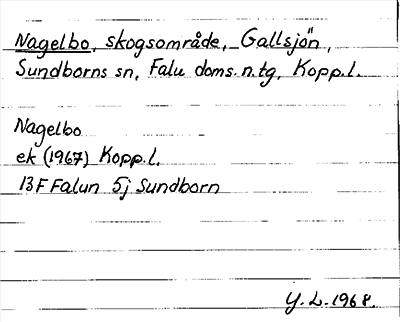 Nagelbo, skogsområde, Gallsjön,
Sundborns sn, Falu doms. n. tg, Kopp. l.
Nagelbo
ek (1967) Kopp. l.
13 F Falun 5j Sundborn
Y. L. 1968.